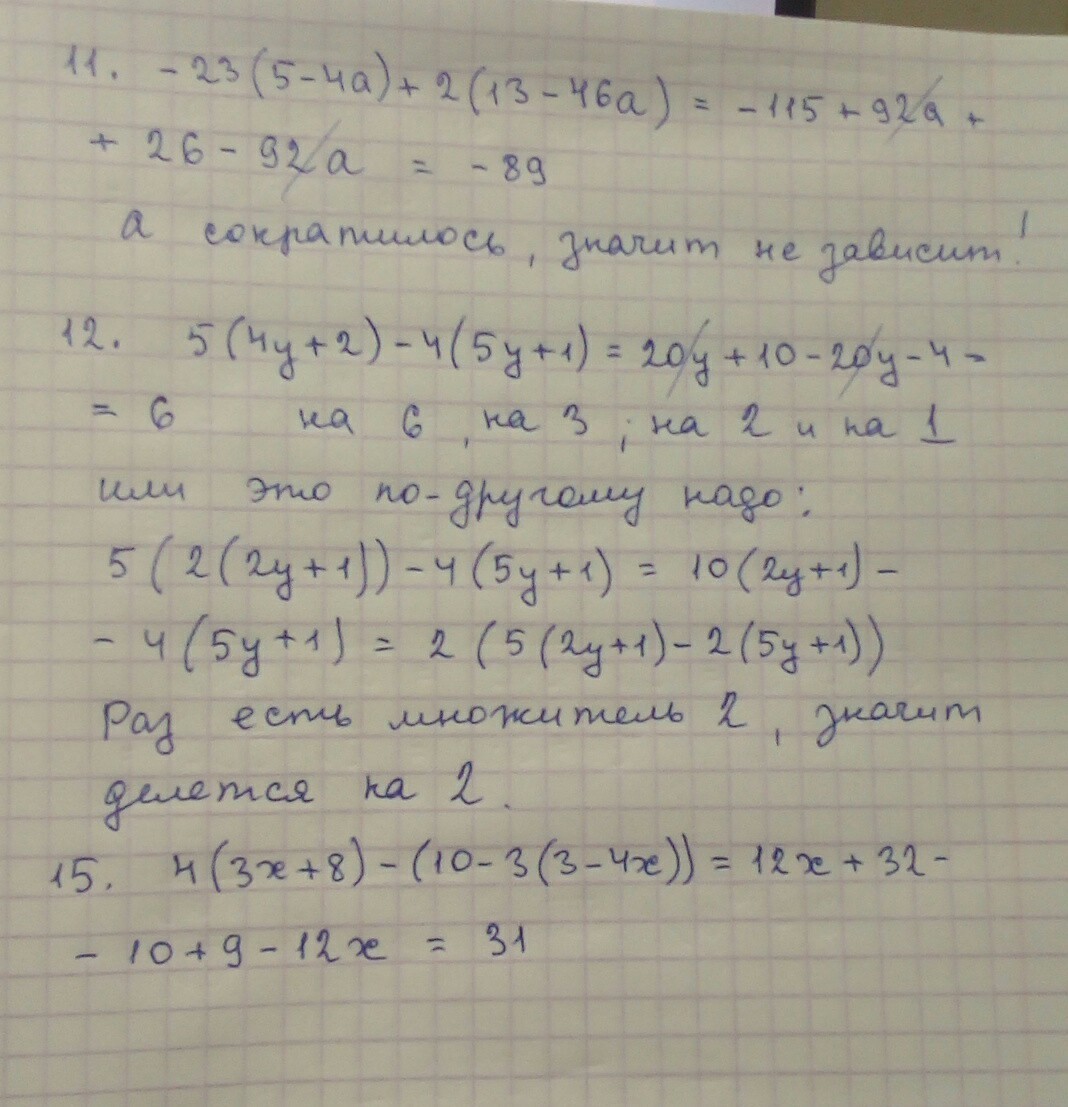 11. -23(5-4a)+2(13-46a) = -115+92a+
+ 26-92a = -89
а сократилось, значит не зависит!
12. 5(4y+2)-4(5y+1)=20y+10-20y-4=
= 6 на 6, на 3; на 2 и на 1
или это по-другому надо:
5(2(2y+1))-4(5y+1) = 10(2y+1)-
-4(5y+1) = 2(5(2y+1)-2(5y+1))
Раз есть множитель 2, значит
делется на 2.
15. 4(3x+8)-(10-3(3-4x))=12x+32-
-10+9-12x = 31